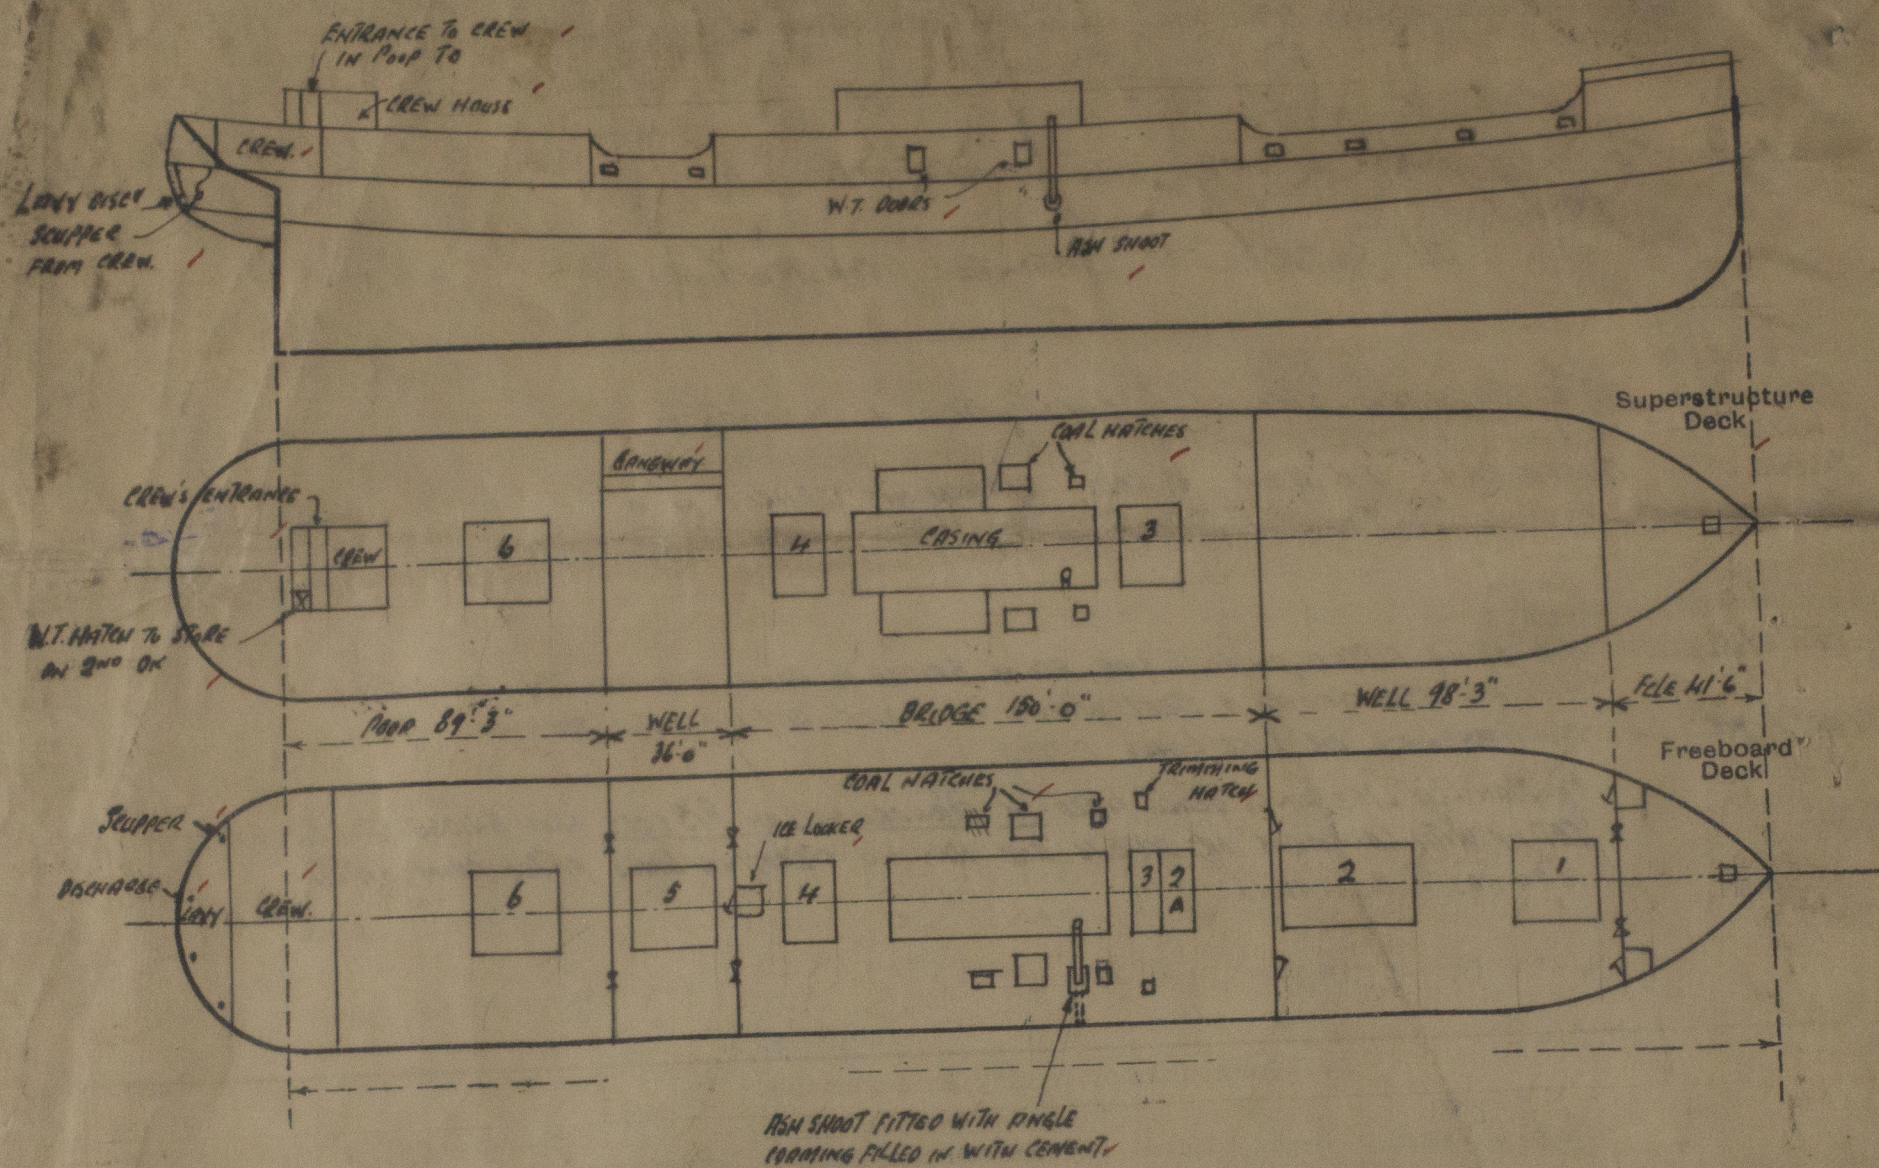 ENTRANCE TO CREW
IN POOP TO
CREW HOUSE
CREW.
LAVY DISC'Y
SCUPPER
FROM CREW.
W.T. DOORS
ASH SHOOT
Superstructure
Deck
COAL HATCHES
GANGWAY
CREW'S ENTRANCE
CREW
6
4
CASING
3
W.T. HATCH TO STORE
ON 2ND DK
POOP 89'-3"
WELL
36'-0"
BRIDGE 150'-0"
WELL 98'-3"
FCLE 41'-6"
Freeboard
Deck
COAL HATCHES
TRIMMING
HATCH
SCUPPER
ICE LOCKER
DISCHARGE
LAVY
CREW.
6
5
4
3
2
A
2
1
ASH SHOOT FITTED WITH ANGLE
COAMING FILLED IN WITH CEMENT